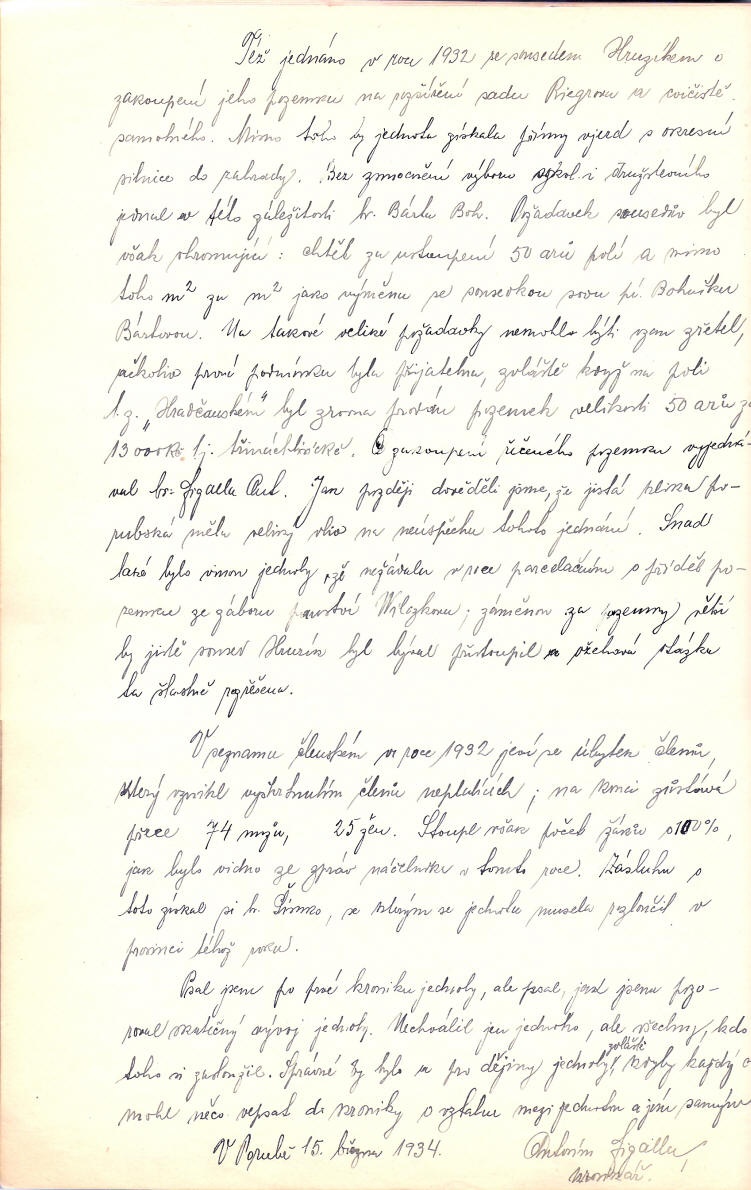 Též jednáno v roce 1932 se sousedem Hruzíkem o
zakoupení jeho pozemku na rozšíření sadu Riegrova a cvičiště
samotného. Mimo toho by jednota získala přímý vjezd s okresní
silnice do zahrady. Bez zmocnění výboru sokol. i družstevního
jednal v této záležitosti br. Bárta Boh. Požadavek sousedův byl
však ohromující: chtěl za ustoupení 50 arů polí a mimo
toho m² za m² jako výměnu se sousedkou svou pí. Bohuškou
Bártovou. Na takové veliké požadavky nemohlo býti vzato zřetel,
ačkoliv první podmínka byla přijatelna, zvláště když na poli
t.z. „Hradčanském" byl zrovna prodán pozemek velikosti 50 arů za
13000Kč tj. třinácttisíckč. O zakoupení řečeného pozemku vyjedná-
val br. Zigalla Ant. Jak později dověděli jsme, že jistá klika po-
rubská měla veliký vliv na neúspěchu tohoto jednání. Snad
také bylo vinou jednoty, že nežádala v roce parcelačním o příděl po-
zemku ze záboru panství Wilczkova; záměnou za pozemky větší
by jistě soused Hruzík byl býval přistoupil a ožehavá otázka
ta šťastně rozřešena.
V seznamu členském v roce 1932 jeví se úbytek členů,
který vznikl vyškrtnutím členů neplatících; na konci zůstává
přece 74 mužů, 25 žen. Stoupl však počet žáků o 100%,
jak bylo vidno ze zpráv náčelníka v tomto roce. Zásluhu o
toto získal si br. Šimko, se kterým se jednota musela rozloučit v
prosinci téhož roku.
Psal jsem po prvé kroniku jednoty, ale psal, jak jsem pozo-
roval skutečný vývoj jednoty. Nechválil jen jednoho, ale všechny, kdo
toho si zasloužil. Správné by bylo a pro dějiny jednoty zvláště, kdyby každý
mohl něco vepsat do kroniky o vztahu mezi jednotou a jím samým
V Porubě 15. března 1934. Antonín Zigalla,
kronikář.